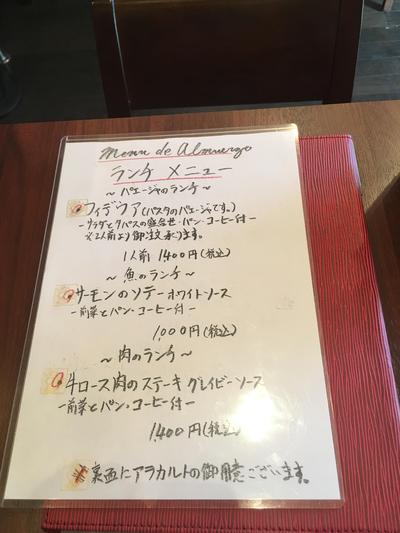 Menu de Almuergo
ランチ メニュー
～パエージャのランチ～
フィデウア(パスタのパエージャです。)
－サラダとタパスの盛合せ・パン・コーヒー付－
※2人前より御注文承ります。
1人前 1400円(税込)
～魚のランチ～
サーモンのソテーホワイトソース
－前菜とパン・コーヒー付－
1,000円(税込)
～肉のランチ～
牛ロース肉のステーキグレイビーソース
－前菜とパン・コーヒー付－
1,400円(税込)
※裏面にアラカルトの御用意ございます。